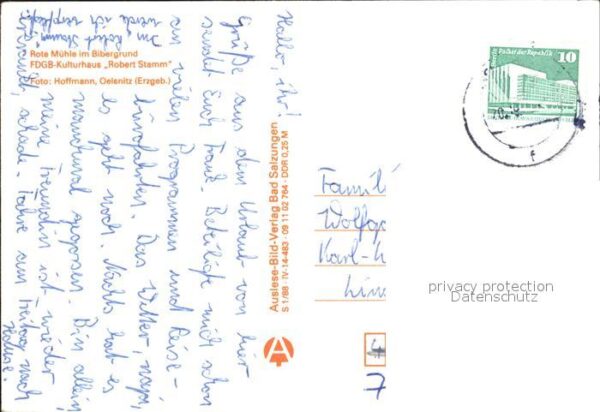 Rote Mühle im Bibergrund
FDGB-Kulturhaus „Robert Stamm"
Foto: Hoffmann, Oelsnitz (Erzgeb.)
Hallo, ihr!
Grüße aus dem Urlaub von hier
sendet Euch Beteilige mich schon
an vielen Programmen und Reise-
büro fahrten. Das Wetter, naja,
es geht noch. Nachts hat es
manchmal gegossen. Bin allein
meine Freundin ist wieder
schade. Fahre am Freitag nach
Hause.
Im „Robert Stamm"
werde ich verpflegt.
Auslese-Bild-Verlag Bad Salzungen
S 1/88 · IV-14-483 · 09 11 02 764 · DDR 0,25 M
A
Palast der Republik
10
Famil
Wolfg
Karl-
4
7
privacy protection
Datenschutz